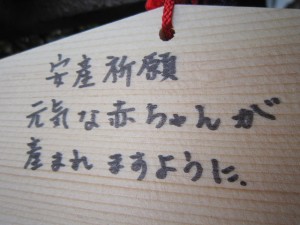 安産祈願
元気な赤ちゃんが
産まれますように.